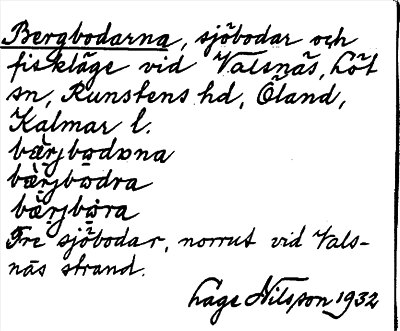 Bergbodarna, sjöbodar och
fiskläge vid Valsnäs, Löt
sn, Runstens hd, Öland,
Kalmar l.
bæ̀rjbωdɒna
bæ̀rjbὼdra
bæ̀rjbωra
Tre sjöbodar, norrut vid Vals-
näs strand.
Låge Nilsson 1932